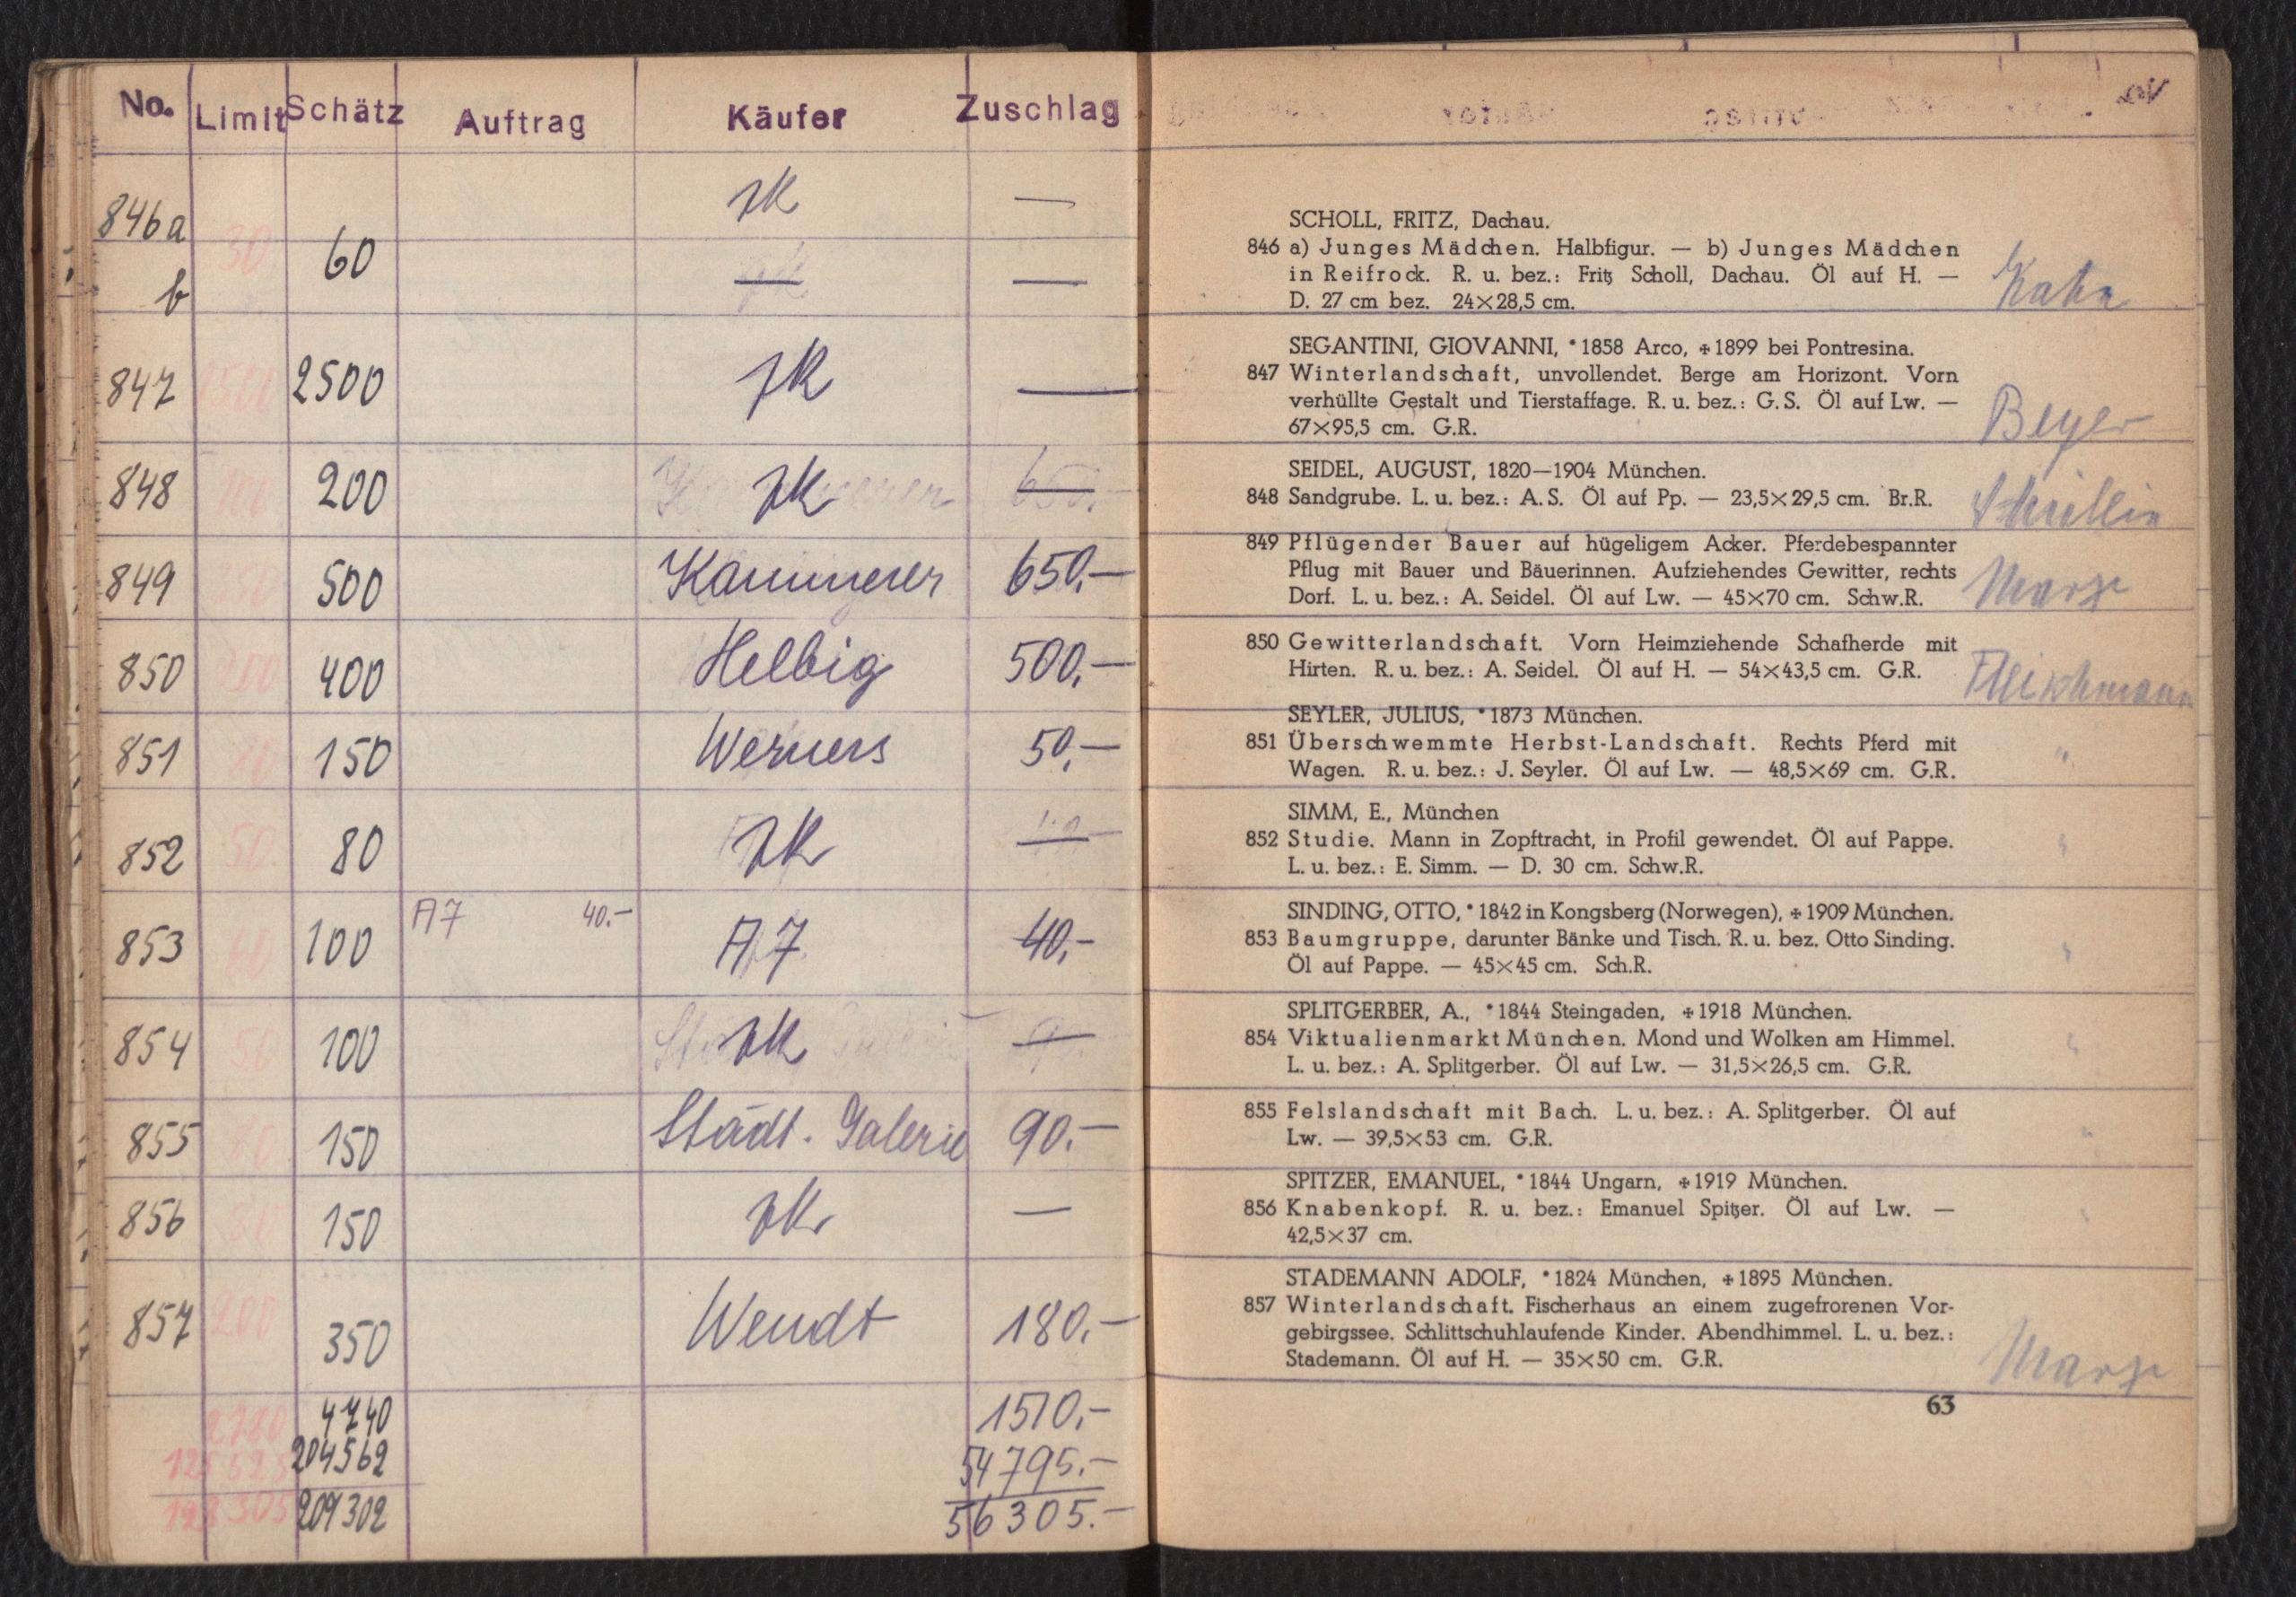 No. Limit Schätz Auftrag Käufer Zuschlag
846a zK —
30 60
b —
847 1500 2500 zK —
848 200 zK —
849 500 Kammerer 650.—
850 400 Helbig 500.—
851 80 150 Werners 50.—
852 50 80 zK —
853 60 100 A7 40.— A7 40.—
854 50 100 zK —
855 150 Städt. Galerie 90.—
856 150 zK —
857 200 350 Wendt 180.—
4740 1510.—
204562 54795.—
209302 56305.—
SCHOLL, FRITZ, Dachau.
846 a) Junges Mädchen. Halbfigur. — b) Junges Mädchen
in Reifrock. R. u. bez.: Fritz Scholl, Dachau. Öl auf H. —
D. 27 cm bez. 24×28,5 cm.
Kahn
SEGANTINI, GIOVANNI, *1858 Arco, ✢1899 bei Pontresina.
847 Winterlandschaft, unvollendet. Berge am Horizont. Vorn
verhüllte Gestalt und Tierstaffage. R. u. bez.: G. S. Öl auf Lw. —
67×95,5 cm. G.R.
Beyer
SEIDEL, AUGUST, 1820—1904 München.
848 Sandgrube. L. u. bez.: A. S. Öl auf Pp. — 23,5×29,5 cm. Br.R.
849 Pflügender Bauer auf hügeligem Acker. Pferdebespannter
Pflug mit Bauer und Bäuerinnen. Aufziehendes Gewitter, rechts
Dorf. L. u. bez.: A. Seidel. Öl auf Lw. — 45×70 cm. Schw.R.
850 Gewitterlandschaft. Vorn Heimziehende Schafherde mit
Hirten. R. u. bez.: A. Seidel. Öl auf H. — 54×43,5 cm. G.R.
Fleischmann
SEYLER, JULIUS, *1873 München.
851 Überschwemmte Herbst-Landschaft. Rechts Pferd mit
Wagen. R. u. bez.: J. Seyler. Öl auf Lw. — 48,5×69 cm. G.R.
"
SIMM, E., München
852 Studie. Mann in Zopftracht, in Profil gewendet. Öl auf Pappe.
L. u. bez.: E. Simm. — D. 30 cm. Schw.R.
SINDING, OTTO, *1842 in Kongsberg (Norwegen), ✢1909 München.
853 Baumgruppe, darunter Bänke und Tisch. R. u. bez. Otto Sinding.
Öl auf Pappe. — 45×45 cm. Sch.R.
SPLITGERBER, A., *1844 Steingaden, ✢1918 München.
854 Viktualienmarkt München. Mond und Wolken am Himmel.
L. u. bez.: A. Splitgerber. Öl auf Lw. — 31,5×26,5 cm. G.R.
855 Felslandschaft mit Bach. L. u. bez.: A. Splitgerber. Öl auf
Lw. — 39,5×53 cm. G.R.
SPITZER, EMANUEL, *1844 Ungarn, ✢1919 München.
856 Knabenkopf. R. u. bez.: Emanuel Spitzer. Öl auf Lw. —
42,5×37 cm.
STADEMANN ADOLF, *1824 München, ✢1895 München.
857 Winterlandschaft. Fischerhaus an einem zugefrorenen Vor-
gebirgssee. Schlittschuhlaufende Kinder. Abendhimmel. L. u. bez.:
Stademann. Öl auf H. — 35×50 cm. G.R.
63